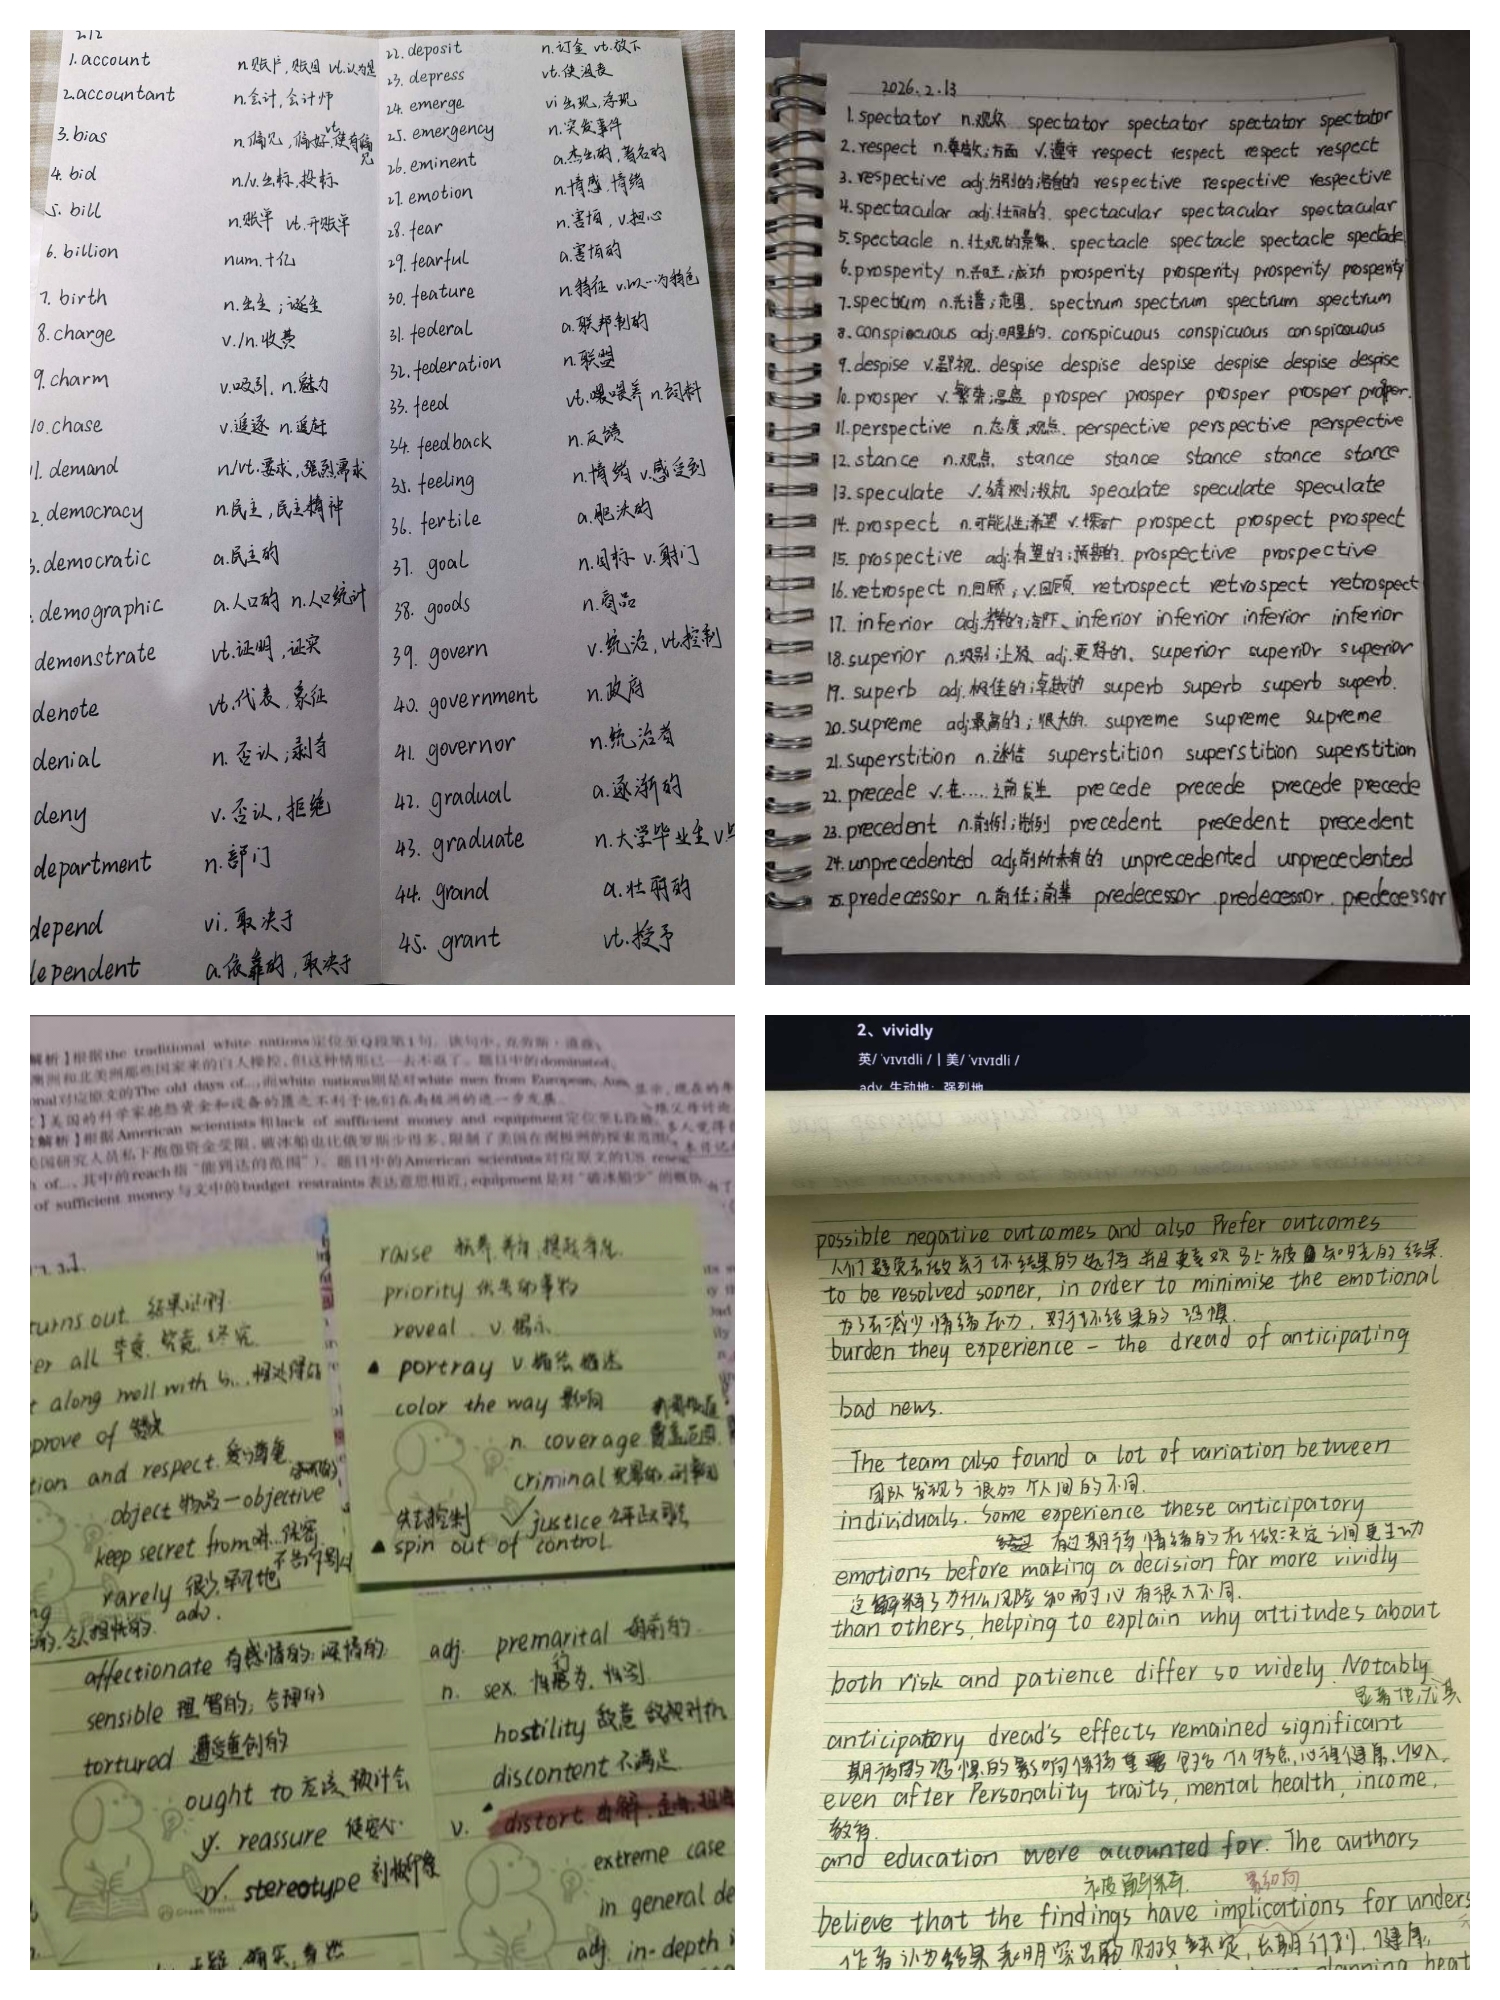 2.12
1.account n.账户,账目 vt.认为是
2.accountant n.会计,会计师
3.bias n.偏见,偏好 vt.使有偏见
4.bid n./v.出标,投标
5.bill n.账单 vt.开账单
6.billion num.十亿
7.birth n.出生;诞生
8.charge v./n.收费
9.charm v.吸引,n.魅力
10.chase v.追逐 n.追赶
11.demand n/vt.要求,强烈需求
2.democracy n.民主,民主精神
3.democratic a.民主的
.demographic a.人口的 n.人口统计
demonstrate vt.证明,证实
denote vt.代表,象征
denial n.否认;剥夺
deny v.否认,拒绝
department n.部门
depend vi.取决于
dependent a.依靠的,取决于
22.deposit n.订金 vt.放下
23.depress vt.使沮丧
24.emerge vi出现,浮现
25.emergency n.突发事件
26.eminent a.杰出的,著名的
27.emotion n.情感,情绪
28.fear n.害怕,v.担心
29.fearful a.害怕的
30.feature n.特征 v.以…为特色
31.federal a.联邦制的
32.federation n.联盟
33.feed vt.喂喂养 n.饲料
34.feedback n.反馈
35.feeling n.情绪 v.感受到
36.fertile a.肥沃的
37.goal n.目标 v.射门
38.goods n.商品
39.govern v.统治,vt.控制
40.government n.政府
41.governor n.统治者
42.gradual a.逐渐的
43.graduate n.大学毕业生 v.
44.grand a.壮丽的
45.grant vt.授予
2026.2.13
1.spectator n.观众 spectator spectator spectator spectator
2.respect n.尊敬;方面 v.遵守 respect respect respect respect
3.respective adj.分别的;各自的 respective respective respective
4.spectacular adj.壮丽的. spectacular spectacular spectacular
5.spectacle n.壮观的景象. spectacle spectacle spectacle spectacle
6.prosperity n.兴旺;成功 prosperity prosperity prosperity prosperity
7.spectrum n.光谱;范围. spectrum spectrum spectrum spectrum
8.conspicuous adj.明显的. conspicuous conspicuous conspicuous
9.despise v.鄙视. despise despise despise despise despise despise
10.prosper v.繁荣; prosper prosper prosper prosper prosper.
11.perspective n.态度,观点. perspective perspective perspective
12.stance n.观点. stance stance stance stance stance
13.speculate v.猜测;投机 speculate speculate speculate
14.prospect n.可能性;希望 v.探矿 prospect prospect prospect
15.prospective adj.有望的;预期的. prospective prospective
16.retrospect n.回顾;v.回顾. retrospect retrospect retrospect
17.inferior adj. inferior inferior inferior inferior
18.superior n.级别;上级 adj.更好的. superior superior superior
19.superb adj.极佳的;卓越的 superb superb superb superb.
20.supreme adj.最高的;很大的. supreme supreme supreme
21.superstition n.迷信 superstition superstition superstition
22.precede v.在.....之前发生 precede precede precede precede
23.precedent n.前例;惯例 precedent precedent precedent
24.unprecedented adj.前所未有的 unprecedented unprecedented
25.predecessor n.前任;前辈 predecessor.predecessor.predecessor
解析】根据the traditional white nations定位至Q段第1句。该句中,克劳斯·道兹
澳洲和北美洲那些国家来的白人操控,但这种情形已一去不返了。题目中的dominated
onal对应原文的The old days of...,而white nations则是对white men from European, Aus
】美国的科学家抱怨资金和设备的匮乏不利于他们在南极洲的进一步发展。
解析】根据American scientists和lack of sufficient money and equipment定位至L段
美国研究人员私下抱怨资金受限,破冰船也比俄罗斯少得多,限制了美国在南极洲的探索范围
of...,其中的reach指“能到达的范围”)。题目中的American scientists对应原文的US rese
of sufficient money与文中的budget restraints表达意思相近;equipment是对“破冰船少”的概括
turns out 结果证明
er all 毕竟.究竟.终究
t along well with sb...相处得好
prove of 赞成
tion and respect.爱与尊重
object 物品—objective
keep secret from 对...保密
不告诉别人
rarely 很少.罕见地
adv.
raise 抚养.养育.提起
priority 优先的事物
reveal v.揭示
▲ portray v.描绘描述
color the way 影响
n. coverage 覆盖范围
criminal 犯罪的.刑事的
justice 公平正义司法
失去控制
▲ spin out of control
affectionate 有感情的;深情的
sensible 理智的;合理的
tortured 遭受重创的
ought to 应该 预计会
v. reassure 使安心
n. stereotype 刻板印象
adj. premarital 婚前的.
n. sex. 性行为.性别
hostility 敌意 敌视对抗
discontent 不满足
v. distort 曲解.歪曲.扭曲
extreme case
in general de
adj. in-depth
2、vividly
英/ ˈvɪvɪdli / | 美/ ˈvɪvɪdli /
adv. 生动地;强烈地
possible negative outcomes and also Prefer outcomes
人们避免去做关于坏结果的选择 并且更喜欢马上被知晓的结果.
to be resolved sooner, in order to minimise the emotional
为了去减少情绪压力,对于坏结果的恐惧.
burden they experience – the dread of anticipating
bad news.
The team also found a lot of variation between
团队发现了很多个人间的不同.
individuals. Some experience these anticipatory
有过期待情绪的在做决定之间更生动
emotions before making a decision far more vividly
这解释了为什么风险和耐心有很大不同.
than others, helping to explain why attitudes about
both risk and patience differ so widely. Notably
显著地,尤其
anticipatory dread's effects remained significant
期待的恐惧的影响保持重要 包括个人特点,心理健康,收入,
even after Personality traits, mental health, income,
教育.
and education were accounted for. The authors
believe that the findings have implications for unders
作者认为结果表明突出的财政决定,长期计划,健康,